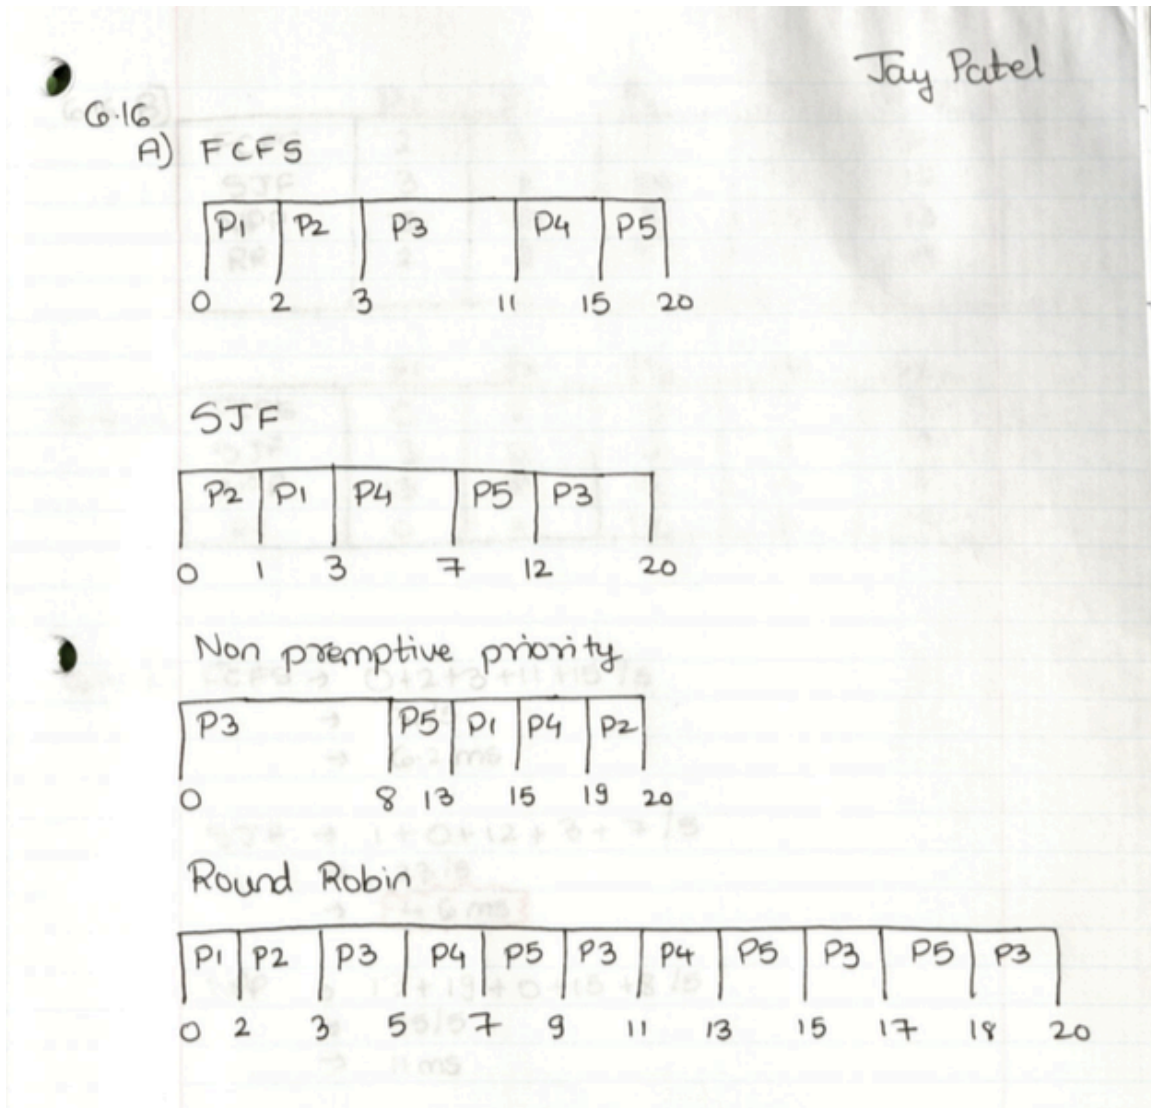 Jay Patel
6.16
A) FCFS
P1 P2 P3 P4 P5
0 2 3 11 15 20
SJF
P2 P1 P4 P5 P3
0 1 3 7 12 20
Non premptive priority
P3 P5 P1 P4 P2
0 8 13 15 19 20
Round Robin
P1 P2 P3 P4 P5 P3 P4 P5 P3 P5 P3
0 2 3 5 7 9 11 13 15 17 18 20